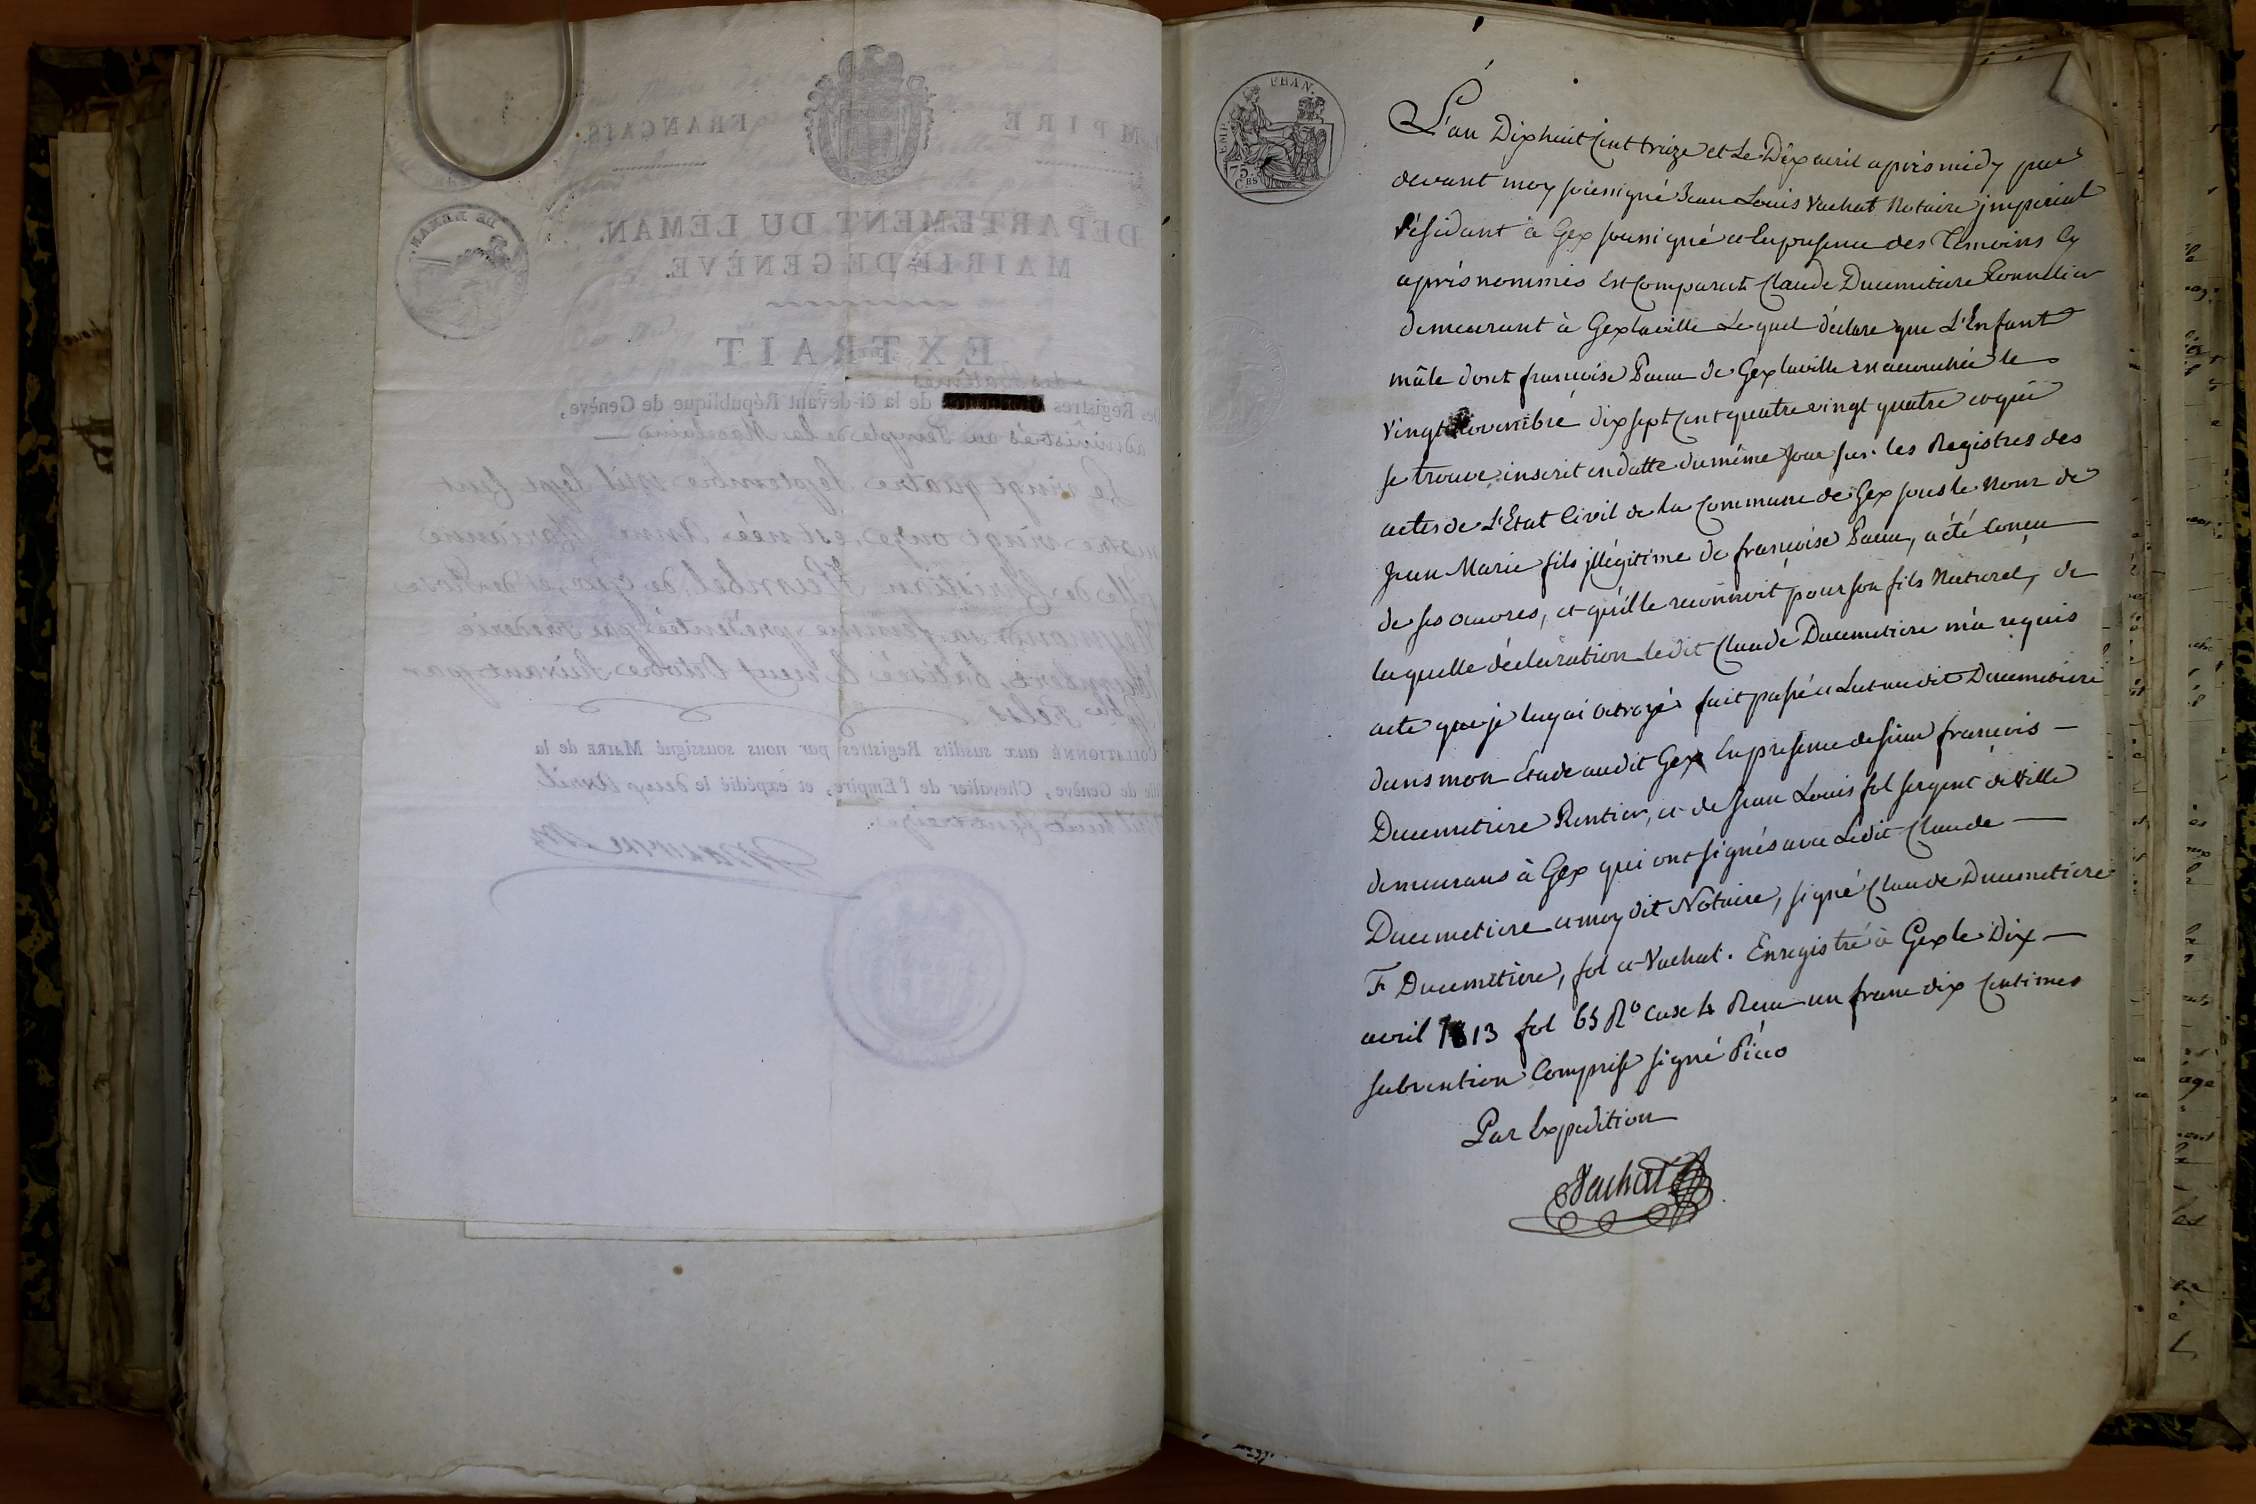 EMPIRE FRANÇAIS.
DÉPARTEMENT DU LÉMAN.
MAIRIE DE GENÈVE.
EXTRAIT
des Batêmes
Des Registres de la ci-devant République de Genève,
administrés au Temple de la Magdelaine
Le vingt quatre Septembre mil Sept Cent
quatre vingt onze, est née Anne Marianne
fille de Christian Humbel de Gex, et de
sa femme présentée par Frédéric
batisée le neuf Octobre Suivant par
COLLATIONNÉ aux susdits Registres par nous soussigné MAIRE de la
Ville de Genève, Chevalier de l'Empire, et expédié le deux Avril
Mil huit Cent treize.
EMP. FRAN.
75.
C.ES
L'an Dixhuit Cent treize et Le Dix avril après midy par
devant moy soussigné Jean Louis Vachat Notaire jmperial
Résidant à Gex soussigné et En presence des Temoins Cy
après nommés Est Comparut Claude Ducimetiere Tonnellier
demeurant à Gex la ville Lequel déclare que L'Enfant
mâle dont francoise Pacu de Gex la ville est accouchée le
Vingt Novembre dix sept Cent quatre vingt quatre et qui
se trouve inscrit en datte du même Jour sur les Registres des
actes de L'Etat Civil de la Commune de Gex sous le Nom de
Jean Marie fils jllégitime de françoise Pacu, a été Conçu
de ses œuvres, et qu'il le reconnoit pour son fils Naturel, de
laquelle déclaration ledit Claude Ducimetiere m'a requis
acte que je luy ai octroyé fait passé et Lut audit Ducimetiere
dans mon Etude audit Gex En presence de sieur francois
Ducimetiere Rentier, et de Jean Louis fol sergent de Ville
demeurans à Gex qui ont signés avec Ledit Claude
Ducimetiere et moy dit Notaire, signé Claude Ducimetiere
F Ducimetiere, fol et Vachat. Enregistré à Gex le Dix
avril 1813 fol 65 Ro Case 4 Recu un franc dix Centimes
subvention Comprise signé Picco
Par Expedition
Vachat